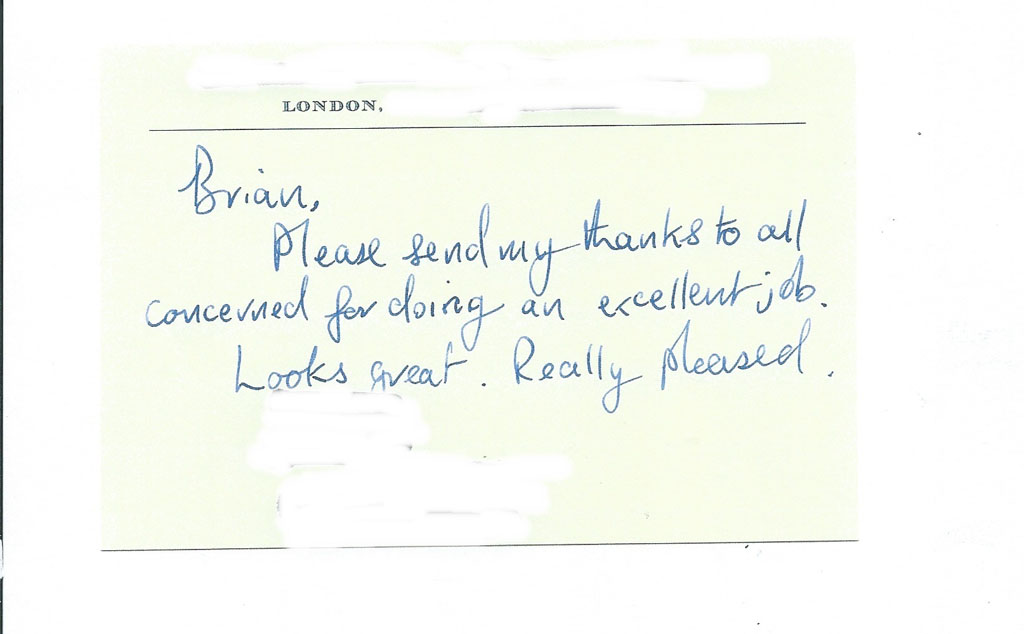 LONDON,
Brian,
Please send my thanks to all
concerned for doing an excellent job.
Looks great. Really pleased.